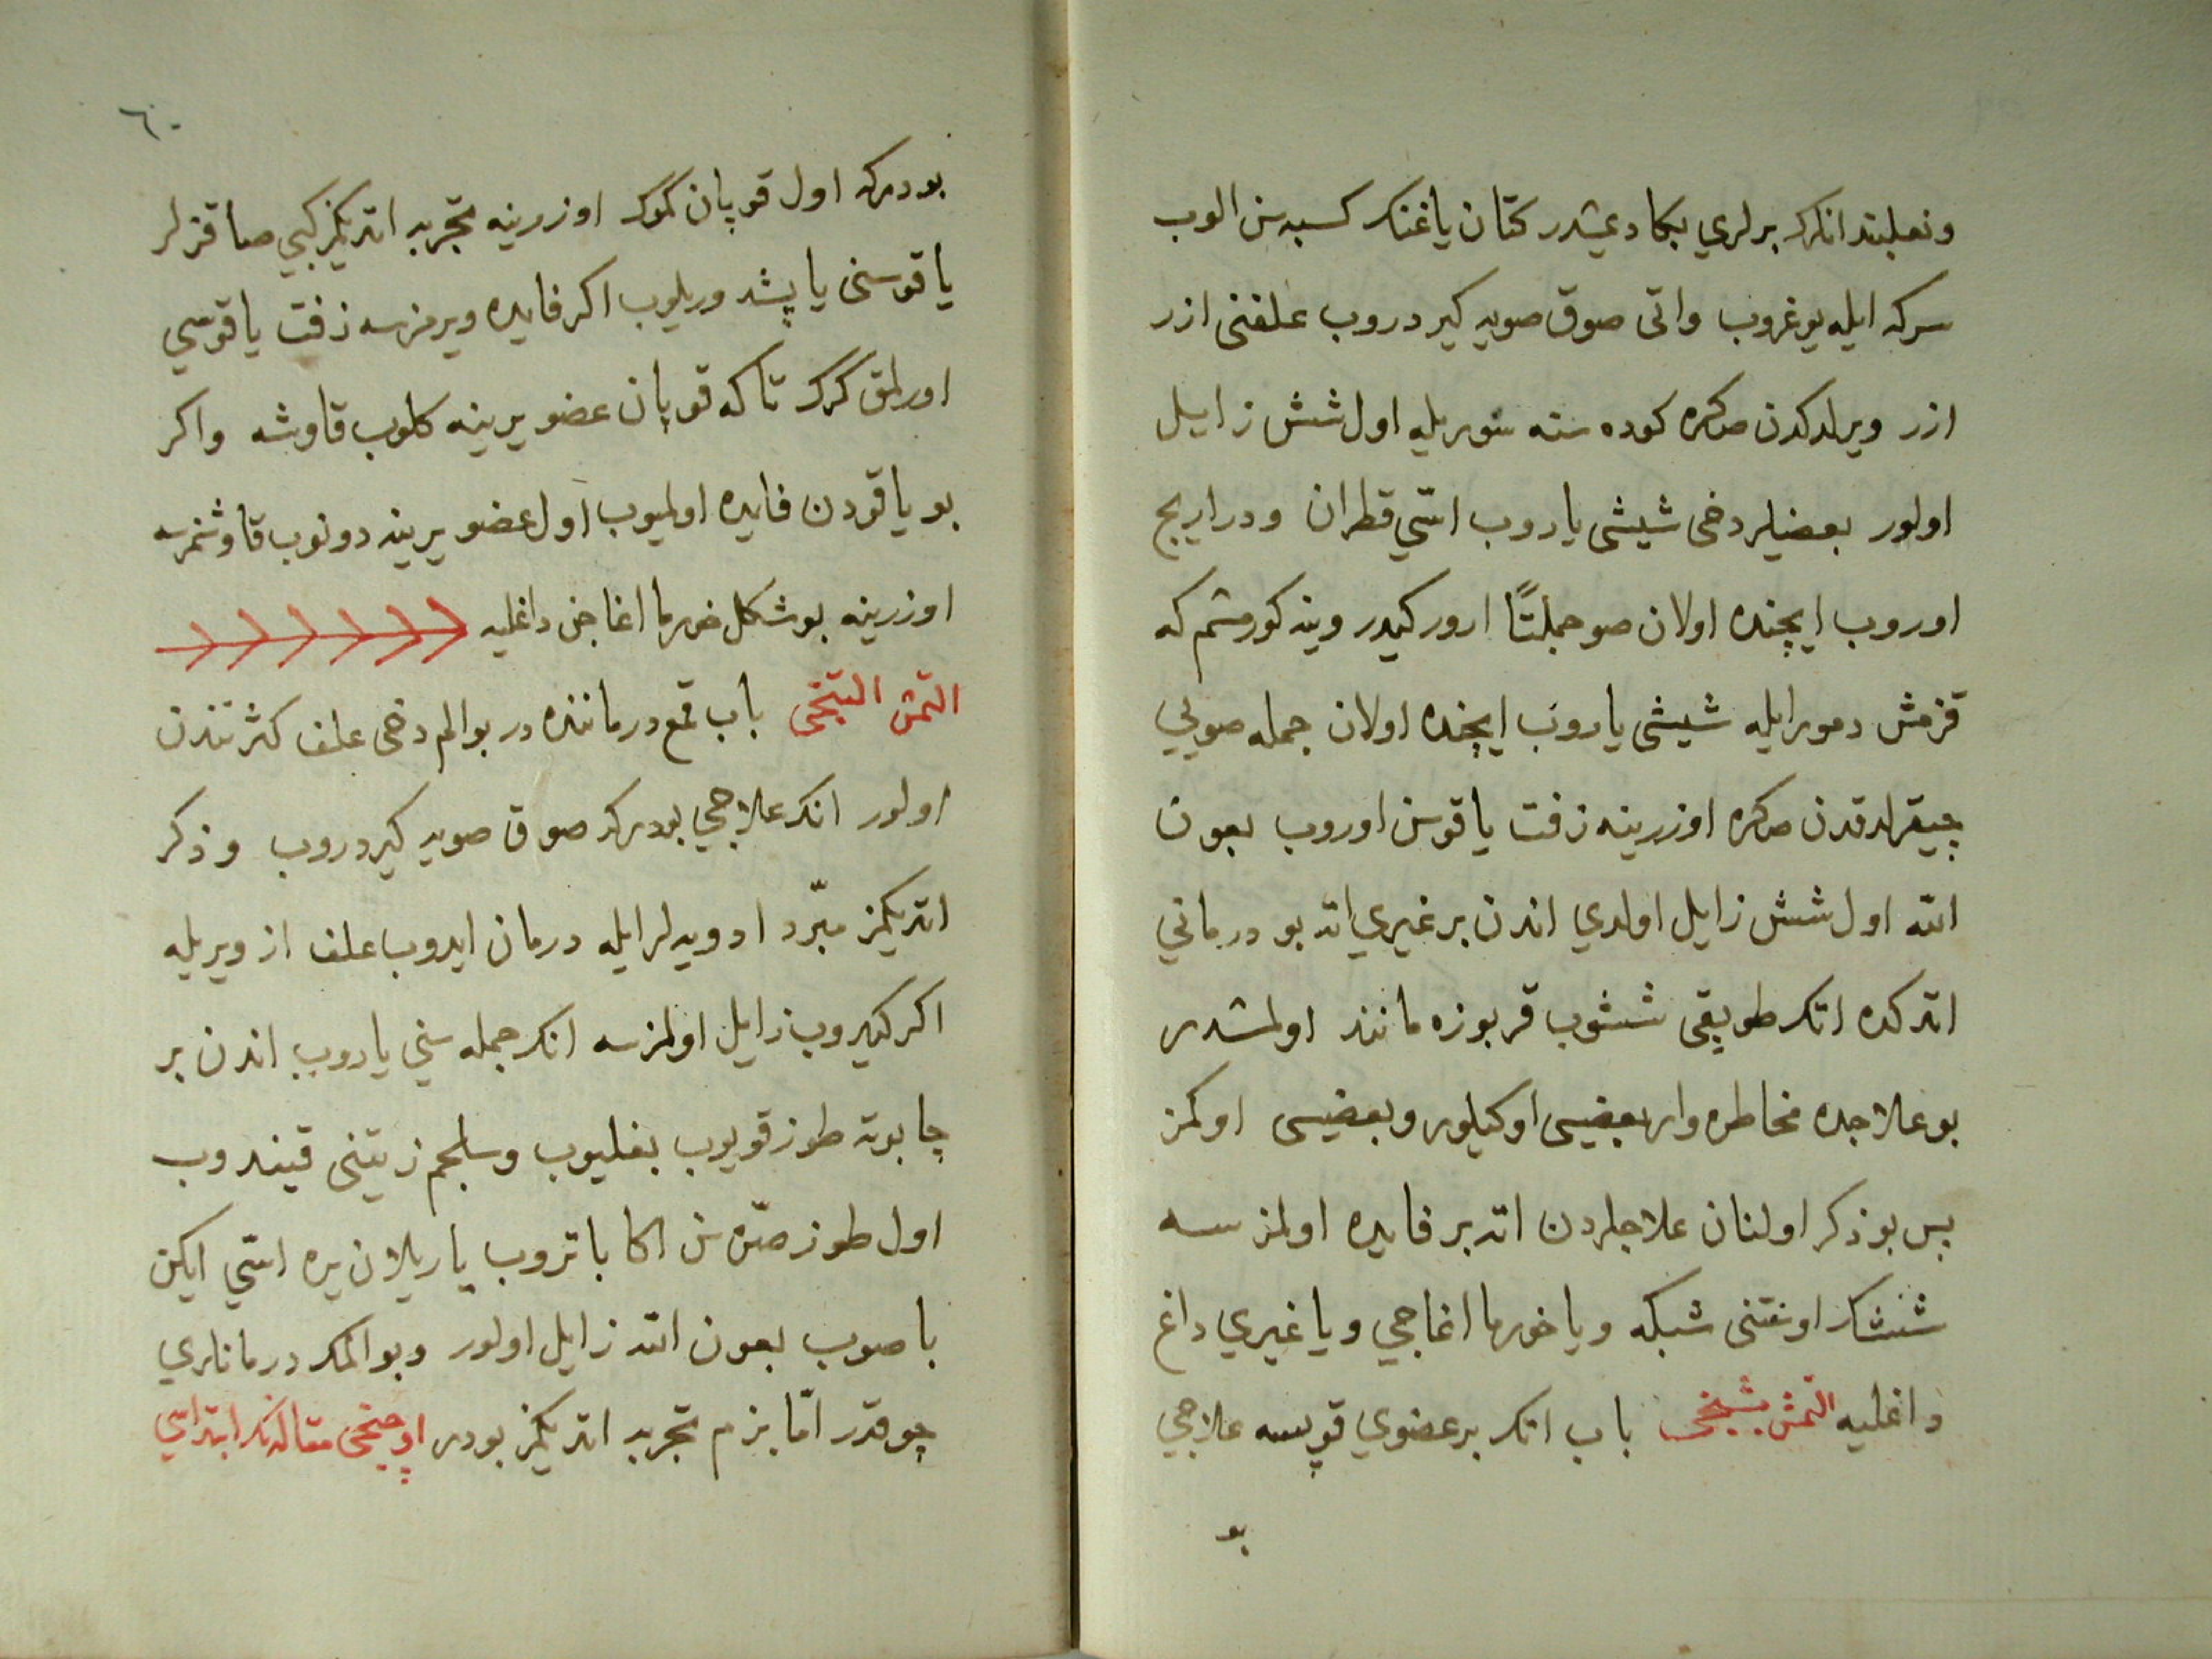 ونعلبند انكر برلري بكا دیمشدر كتان ياغنك كسبه سن الوب
سركه ايله يوغروب واتی صوق صويه كيردروب علفنی ازر
ازر ويرلدكدن صكره كوده سنه سوريله اول شش زايل
اولور بعضيلر دخی شيشی ياروب اسّي قطران ودراريج
اوروب ايچنده اولان صو جملتًا ارور كيدر وينه كورمشم كه
قزمش دمور ايله شيشی ياروب ايچنده اولان جمله صويي
چيقرلدقدن صكره اوزرينه زفت ياقوسن اوروب بعون
الله اول شش زايل اولدي اندن بر غيري اته بو درماني
اتدكده اتك طوپقی ششوب قربوزه مانند اولمشدر
بو علاجده مخاطره وار بعضيسی اوكيلور وبعضيسی اوكمز
پس بو ذكر اولنان علاجلردن اته بر فايده اولمز سه
ششك اوستنی شبكه ويا خورما اغاجي ويا غيري داغ
داغليه التمش بشنجی باب اتك بر عضوي قوپسه علاجي
بو
٦٠
بودركه اول قوپان كموك اوزرينه تجربه اتديكمز كبي صاقزلر
ياقوسنی ياپشدوريلوب اكر فايده ويرمزسه زفت ياقوسي
اورلمق كرك تاكه قوپان عضو يرينه كلوب قاوشه واكر
بو ياقودن فايده اولميوب اول عضو يرينه دونوب قاوشمزسه
اوزرينه بو شكل خورما اغاجن داغليه
التمش التنجی باب قمع درماننده در بو الم دخی علف كثرتندن
اولور انك علاجي بودركه صوق صويه كيردروب وذكر
اتديكمز مبرّد ادويه لر ايله درمان ايدوب علف از ويريله
اكر كيروب زايل اولمزسه انك جمله سني ياروب اندن بر
چابوته طوز قويوب بغليوب وسلجم زيتنی قيندوب
اول طوز صرّه سن اكا باتروب ياريلان يره اسّي ايكن
باصوب بعون الله زايل اولور وبو المك درمانلري
چوقدر امّا بزم تجربه اتديكمز بودر اوچنجی مقاله نك ابتداسي